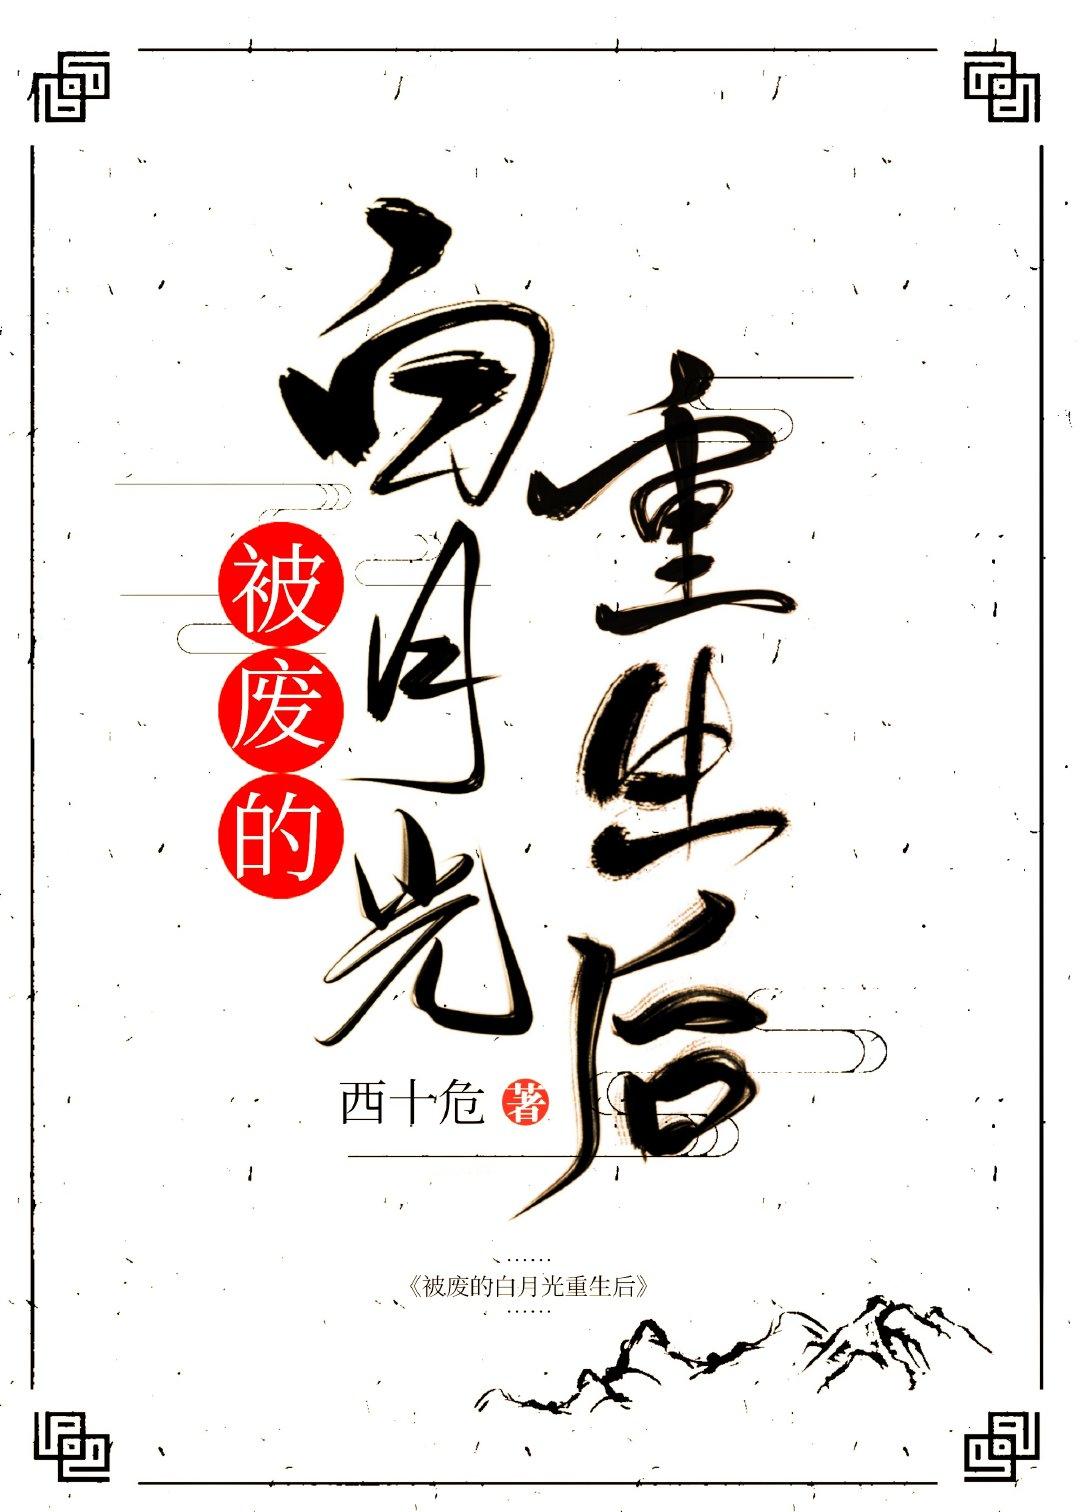 被废的
白月光
重生后
西十危 著
······
《被废的白月光重生后》
······